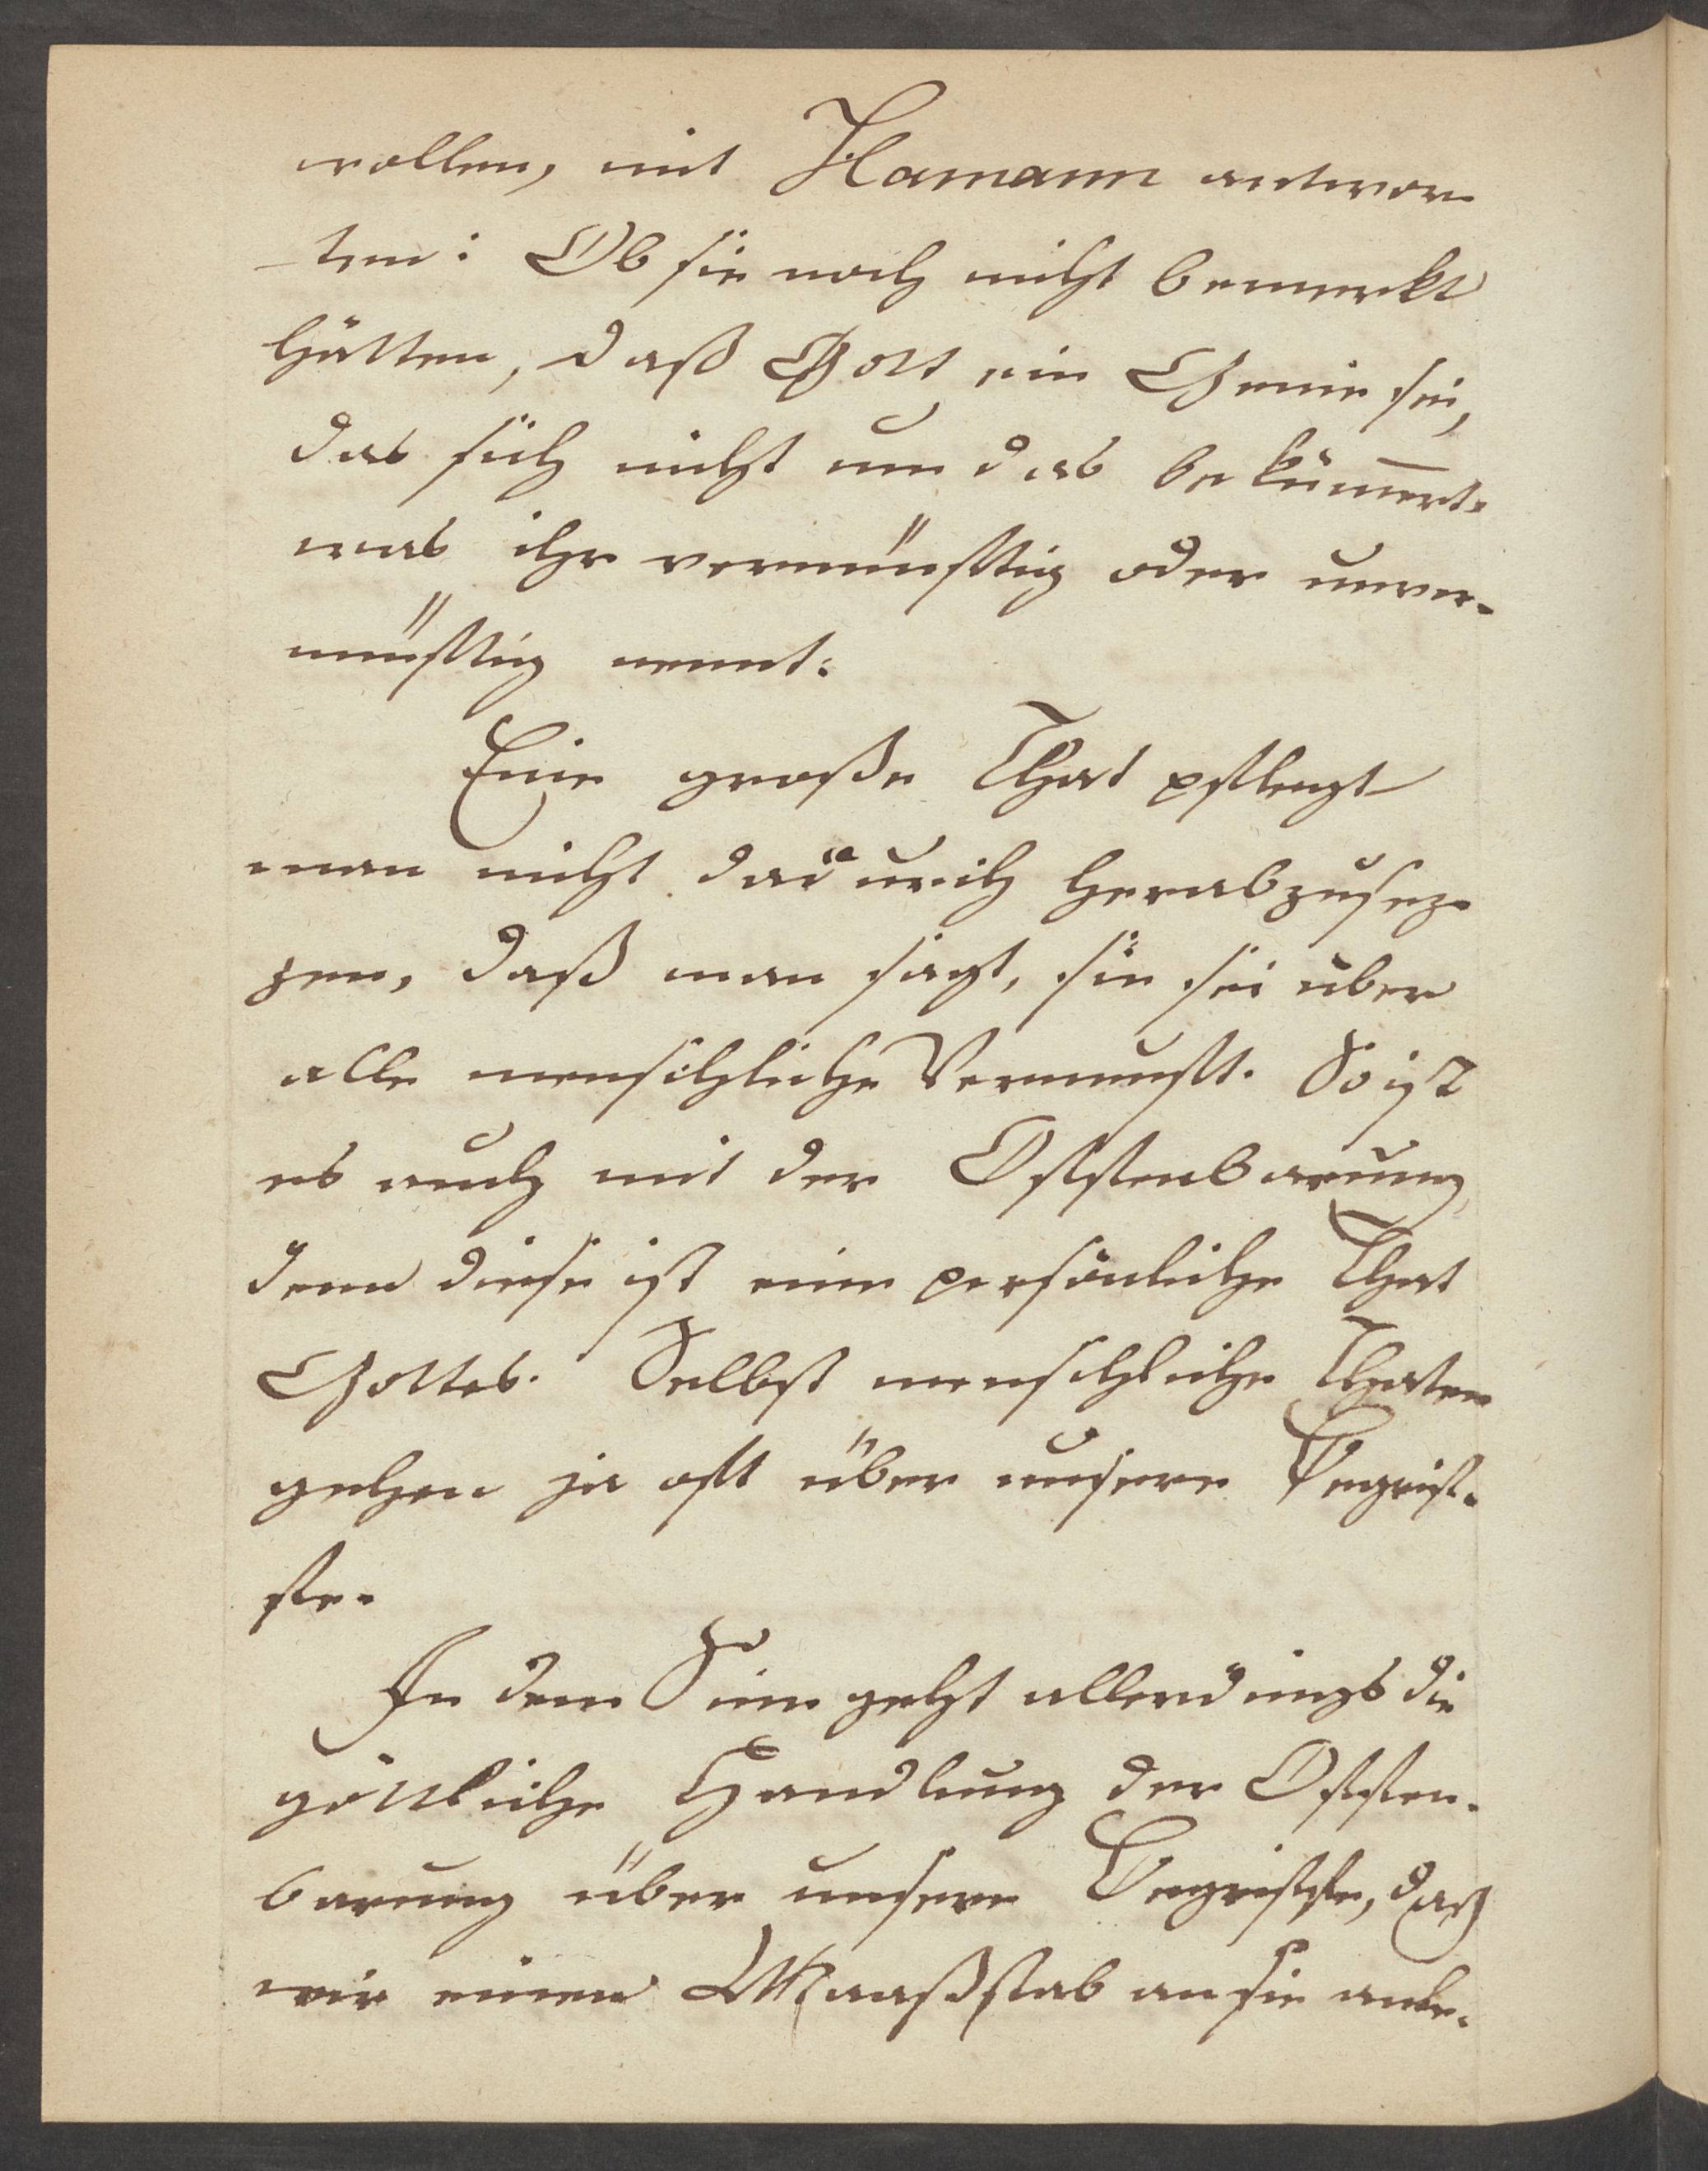 wollen, mit Hamann antwor-
ten: Ob sie noch nicht bemerkt
hätten, daß Gott ein Genie sei,
das sich nicht um das bekümert,
was ihr vernünftig oder unver-
nünftig nennt.
Eine große That pflegt
man nicht dadurch herabzusez-
zen, daß man sagt, sie sei über
alle menschliche Vernunft. So ist
es auch mit der Offenbarung,
denn diese ist eine persönliche That
Gottes. Selbst menschliche Thaten
gehen ja oft über unsere Begrif-
fe.
In dem Sinn geht allerdings die
göttliche Handlung der Offen-
barung über unsere Begriffe, daß
wir einen Maaßstab an sie anle-